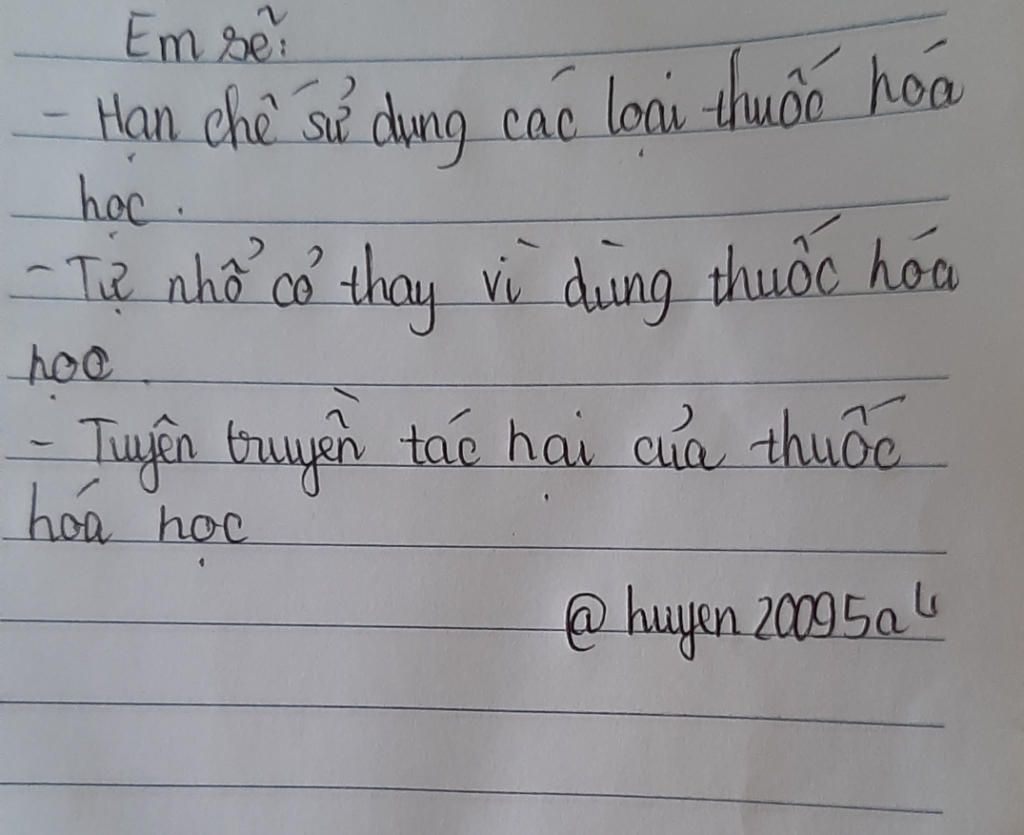 Em sẽ:
- Hạn chế sử dụng các loại thuốc hóa
học.
- Tự nhổ cỏ thay vì dùng thuốc hóa
học.
- Tuyên truyền tác hại của thuốc
hóa học
@huyen20095a4